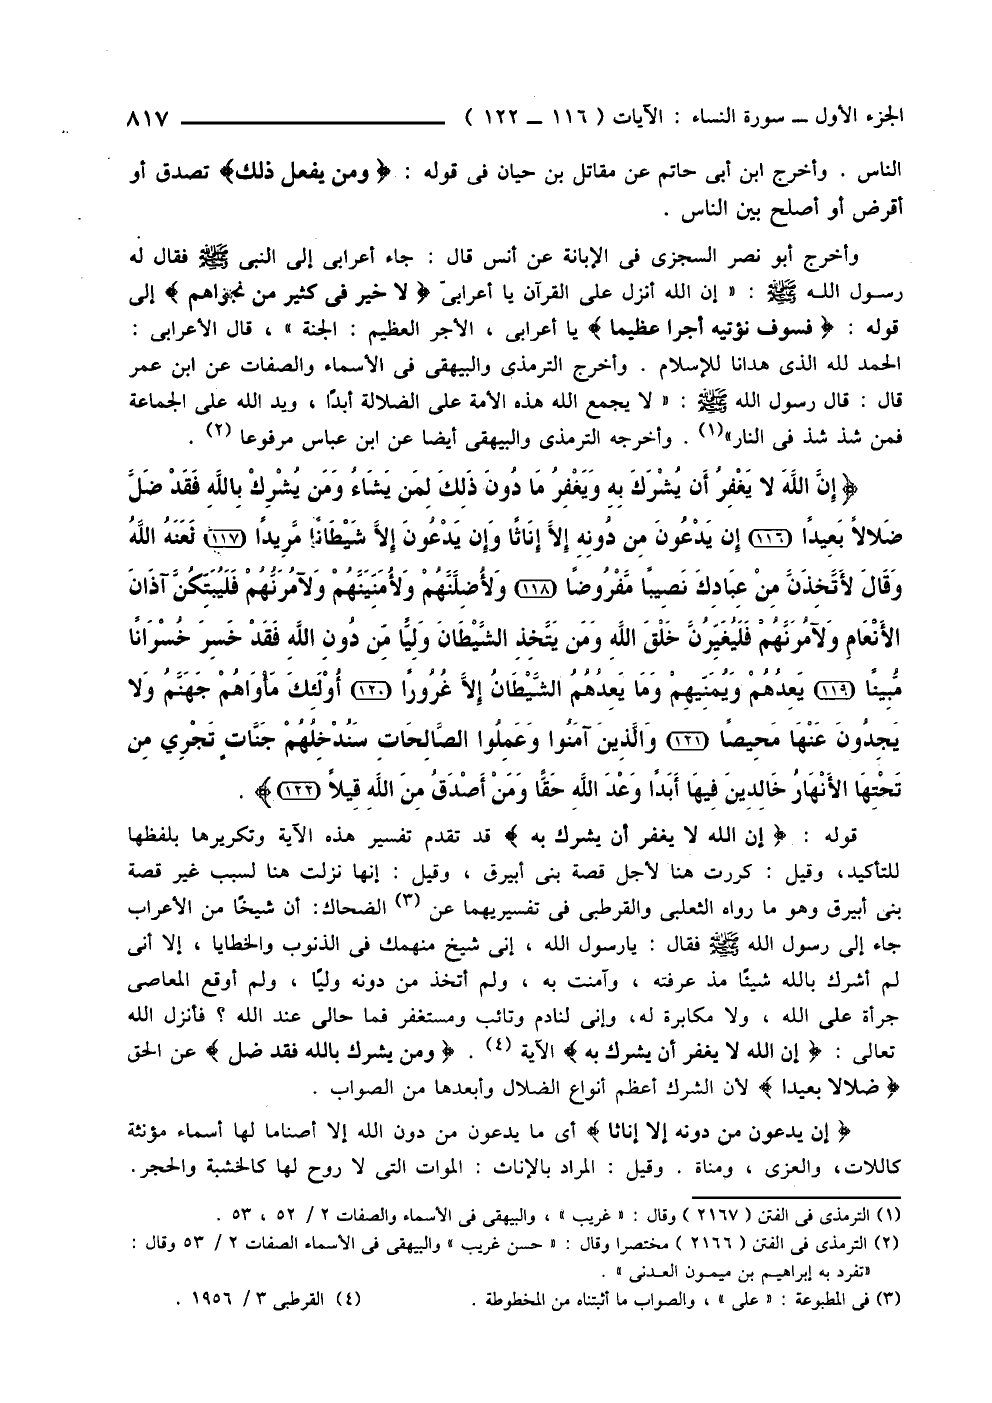 الجزء الأول ــ سورة النساء : الآيات ( ١١٦ ــ ١٢٢ ) ٨١٧
الناس . وأخرج ابن أبى حاتم عن مقاتل بن حيان فى قوله : ﴿ ومن يفعل ذلك﴾ تصدق أو
أقرض أو أصلح بين الناس .
وأخرج أبو نصر السجزى فى الإبانة عن أنس قال : جاء أعرابى إلى النبى ﷺ فقال له
رسول الله ﷺ : « إن الله أنزل على القرآن يا أعرابىّ ﴿ لا خير فى كثير من نجواهم ﴾ إلى
قوله : ﴿ فسوف نؤتيه أجرا عظيما ﴾ يا أعرابى ، الأجر العظيم : الجنة » ، قال الأعرابى :
الحمد لله الذى هدانا للإسلام . وأخرج الترمذى والبيهقى فى الأسماء والصفات عن ابن عمر
قال : قال رسول الله ﷺ : « لا يجمع الله هذه الأمة على الضلالة أبدًا ، ويد الله على الجماعة
فمن شذ شذ فى النار»(١) . وأخرجه الترمذى والبيهقى أيضا عن ابن عباس مرفوعا (٢) .
﴿ إِنَّ اللَّهَ لا يَغْفِرُ أَن يُشْرَكَ بِهِ وَيَغْفِرُ مَا دُونَ ذَلِكَ لِمَن يَشَاءُ وَمَن يُشْرِكْ بِاللَّهِ فَقَدْ ضَلَّ
ضَلالاً بَعِيدًا (١١٦) إِن يَدْعُونَ مِن دُونِهِ إِلاَّ إِنَاثًا وَإِن يَدْعُونَ إِلاَّ شَيْطَانًا مَّرِيدًا (١١٧) لَعَنَهُ اللَّهُ
وَقَالَ لأَتَّخِذَنَّ مِنْ عِبَادِكَ نَصِيبًا مَّفْرُوضًا (١١٨) وَلأُضِلَّنَّهُمْ وَلأُمَنِّيَنَّهُمْ وَلآمُرَنَّهُمْ فَلَيُبَتِّكُنَّ آذَانَ
الأَنْعَامِ وَلآمُرَنَّهُمْ فَلَيُغَيِّرُنَّ خَلْقَ اللَّهِ وَمَن يَتَّخِذِ الشَّيْطَانَ وَلِيًّا مِّن دُونِ اللَّهِ فَقَدْ خَسِرَ خُسْرَانًا
مُّبِينًا (١١٩) يَعِدُهُمْ وَيُمَنِّيهِمْ وَمَا يَعِدُهُمُ الشَّيْطَانُ إِلاَّ غُرُورًا (١٢٠) أُوْلَئِكَ مَأْوَاهُمْ جَهَنَّمُ وَلا
يَجِدُونَ عَنْهَا مَحِيصًا (١٢١) وَالَّذِينَ آمَنُوا وَعَمِلُوا الصَّالِحَاتِ سَنُدْخِلُهُمْ جَنَّاتٍ تَجْرِي مِن
تَحْتِهَا الأَنْهَارُ خَالِدِينَ فِيهَا أَبَدًا وَعْدَ اللَّهِ حَقًّا وَمَنْ أَصْدَقُ مِنَ اللَّهِ قِيلاً (١٢٢)﴾ .
قوله : ﴿ إن الله لا يغفر أن يشرك به ﴾ قد تقدم تفسير هذه الآية وتكريرها بلفظها
للتأكيد، وقيل : كررت هنا لأجل قصة بنى أبيرق ، وقيل : إنها نزلت هنا لسبب غير قصة
بنى أبيرق وهو ما رواه الثعلبى والقرطبى فى تفسيريهما عن (٣) الضحاك: أن شيخًا من الأعراب
جاء إلى رسول الله ﷺ فقال : يارسول الله ، إنى شيخ منهمك فى الذنوب والخطايا ، إلا أنى
لم أشرك بالله شيئًا مذ عرفته ، وآمنت به ، ولم أتخذ من دونه وليًا ، ولم أوقع المعاصى
جرأة على الله ، ولا مكابرة له، وإنى لنادم وتائب ومستغفر فما حالى عند الله ؟ فأنزل الله
تعالى : ﴿ إن الله لا يغفر أن يشرك به ﴾ الآية (٤) . ﴿ ومن يشرك بالله فقد ضل ﴾ عن الحق
﴿ ضلالا بعيدا ﴾ لأن الشرك أعظم أنواع الضلال وأبعدها من الصواب .
﴿ إن يدعون من دونه إلا إناثا ﴾ أى ما يدعون من دون الله إلا أصناما لها أسماء مؤنثة
كاللات، والعزى ، ومناة . وقيل : المراد بالإناث : الموات التى لا روح لها كالخشبة والحجر.
(١) الترمذى فى الفتن ( ٢١٦٧ ) وقال : « غريب » ، والبيهقى فى الأسماء والصفات ٢ / ٥٢ ، ٥٣ .
(٢) الترمذى فى الفتن ( ٢١٦٦ ) مختصرا وقال : « حسن غريب » والبيهقى فى الأسماء الصفات ٢ / ٥٣ وقال :
«تفرد به إبراهيم بن ميمون العدنى » .
(٣) فى المطبوعة : « على » ، والصواب ما أثبتناه من المخطوطة . (٤) القرطبى ٣ / ١٩٥٦ .